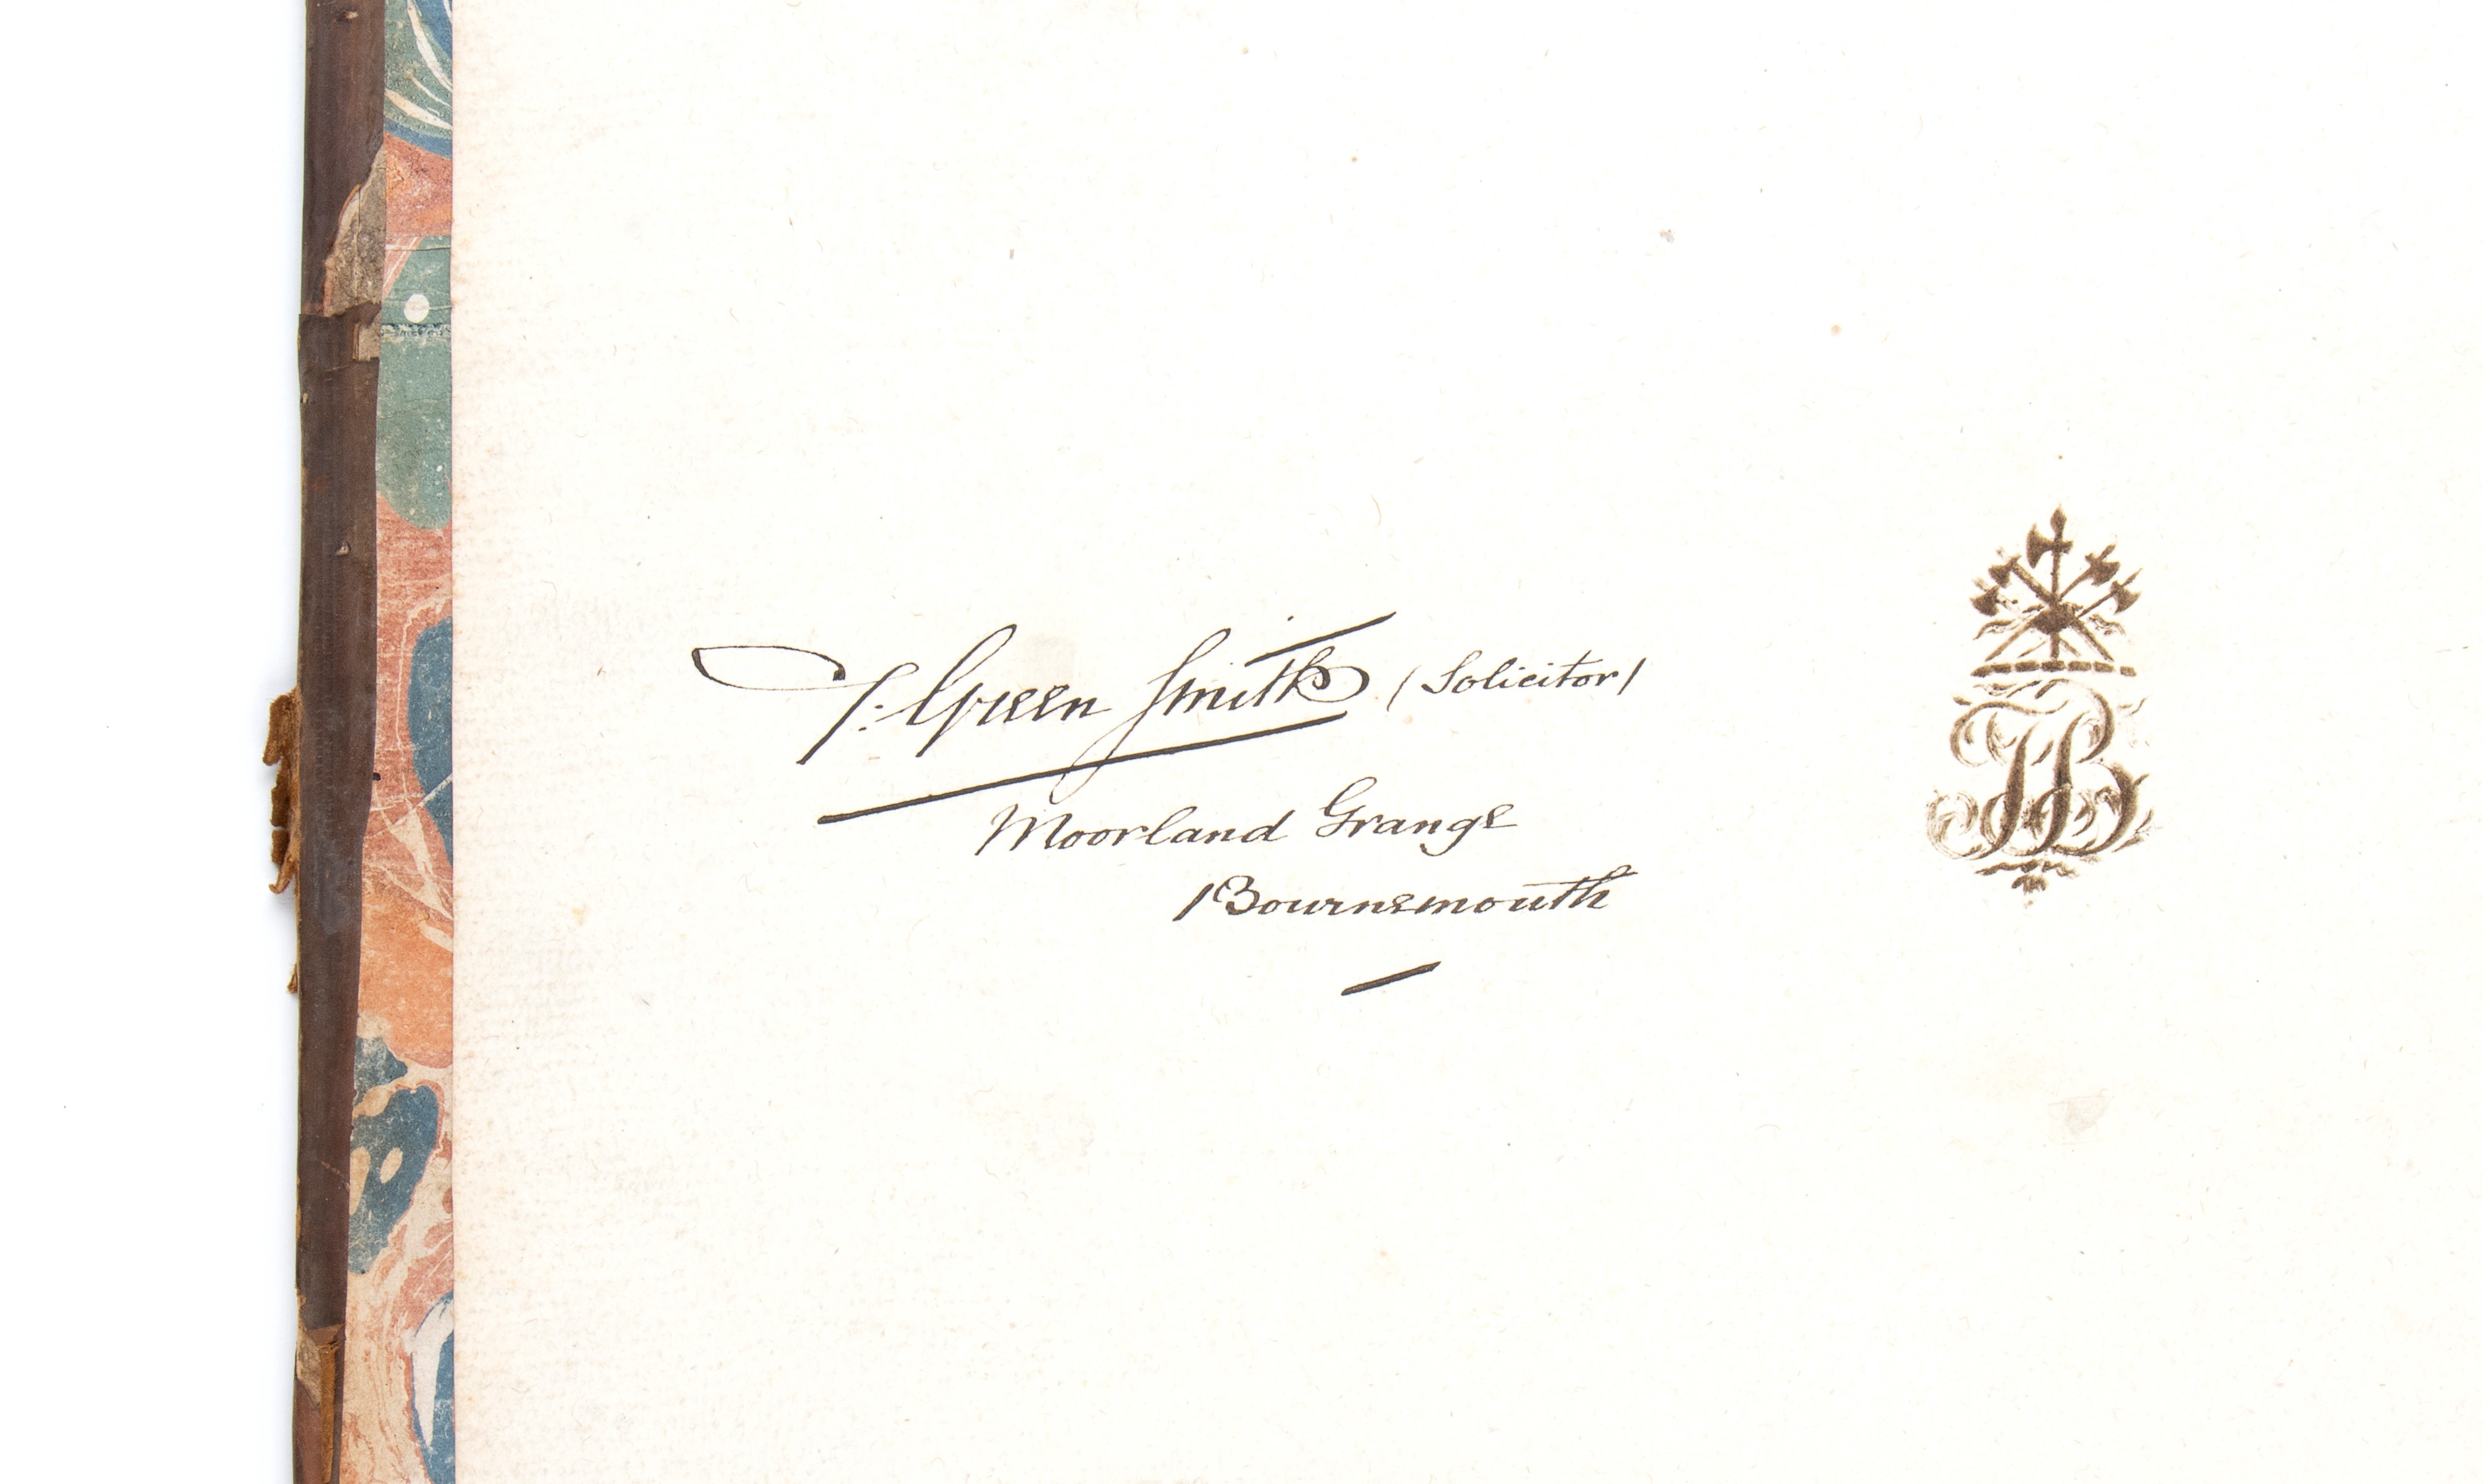 T: Green Smith (Solicitor)
Moorland Grange
Bournemouth
TB